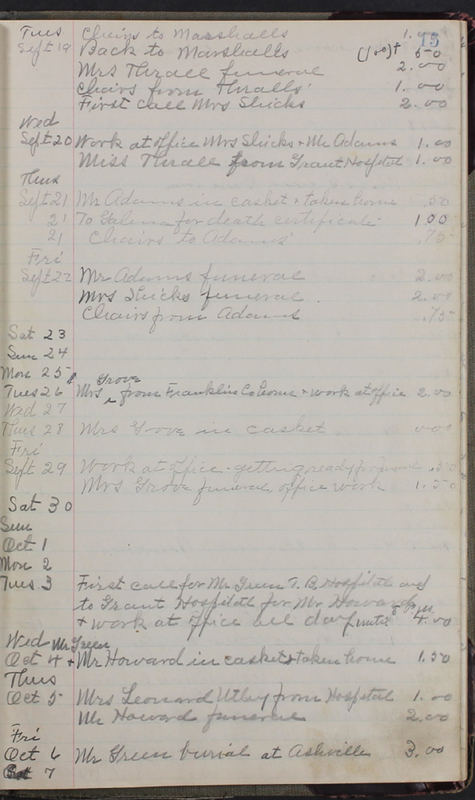 15
Tues Chairs to Marshalls 1.00
Sept 19 Back to Marshalls 50
Mrs Thrall funeral 2.00
chairs from Thralls' 1.00
First call Mrs Shicks 2.00
Wed
Sept 20 Work at office Mrs Shicks + Mr Adams 1.00
Miss Thrall from Grant Hospital 1.00
Thus
Sept 21 Mr Adams in casket + taken home .50
21 To Galena for death certificate 1 00
21 Chairs to Adams' .75
Fri
Sept 22 Mr Adams funeral 2.00
Mrs Shicks funeral. 2.00
Chairs from Adams .75
Sat 23
Sun 24
Mon 25
Grove
Tues 26 Mrs from Franklin Co home + work at office 2.00
Wed 27
Thurs 28 Mrs Grove in casket
Fri
Sept 29 Work at office - getting ready for funeral .50
Mrs Grove funeral, office work 1.50
Sat 30
Sun
Oct 1
Mon 2
Tues 3 First call for Mr Green T. B. Hospital and
to Grant Hospital for Mr Howard
+ work at office all day until 4.00
Wed Mr Green
Oct 4 + Mr Howard in casket + taken home 1.50
Thus
Oct 5 Mrs Leonard Utley from Hospital 1.00
Mr Howard funeral 2.00
Fri
Oct 6 Mr Green burial at Ashville 3.00
7